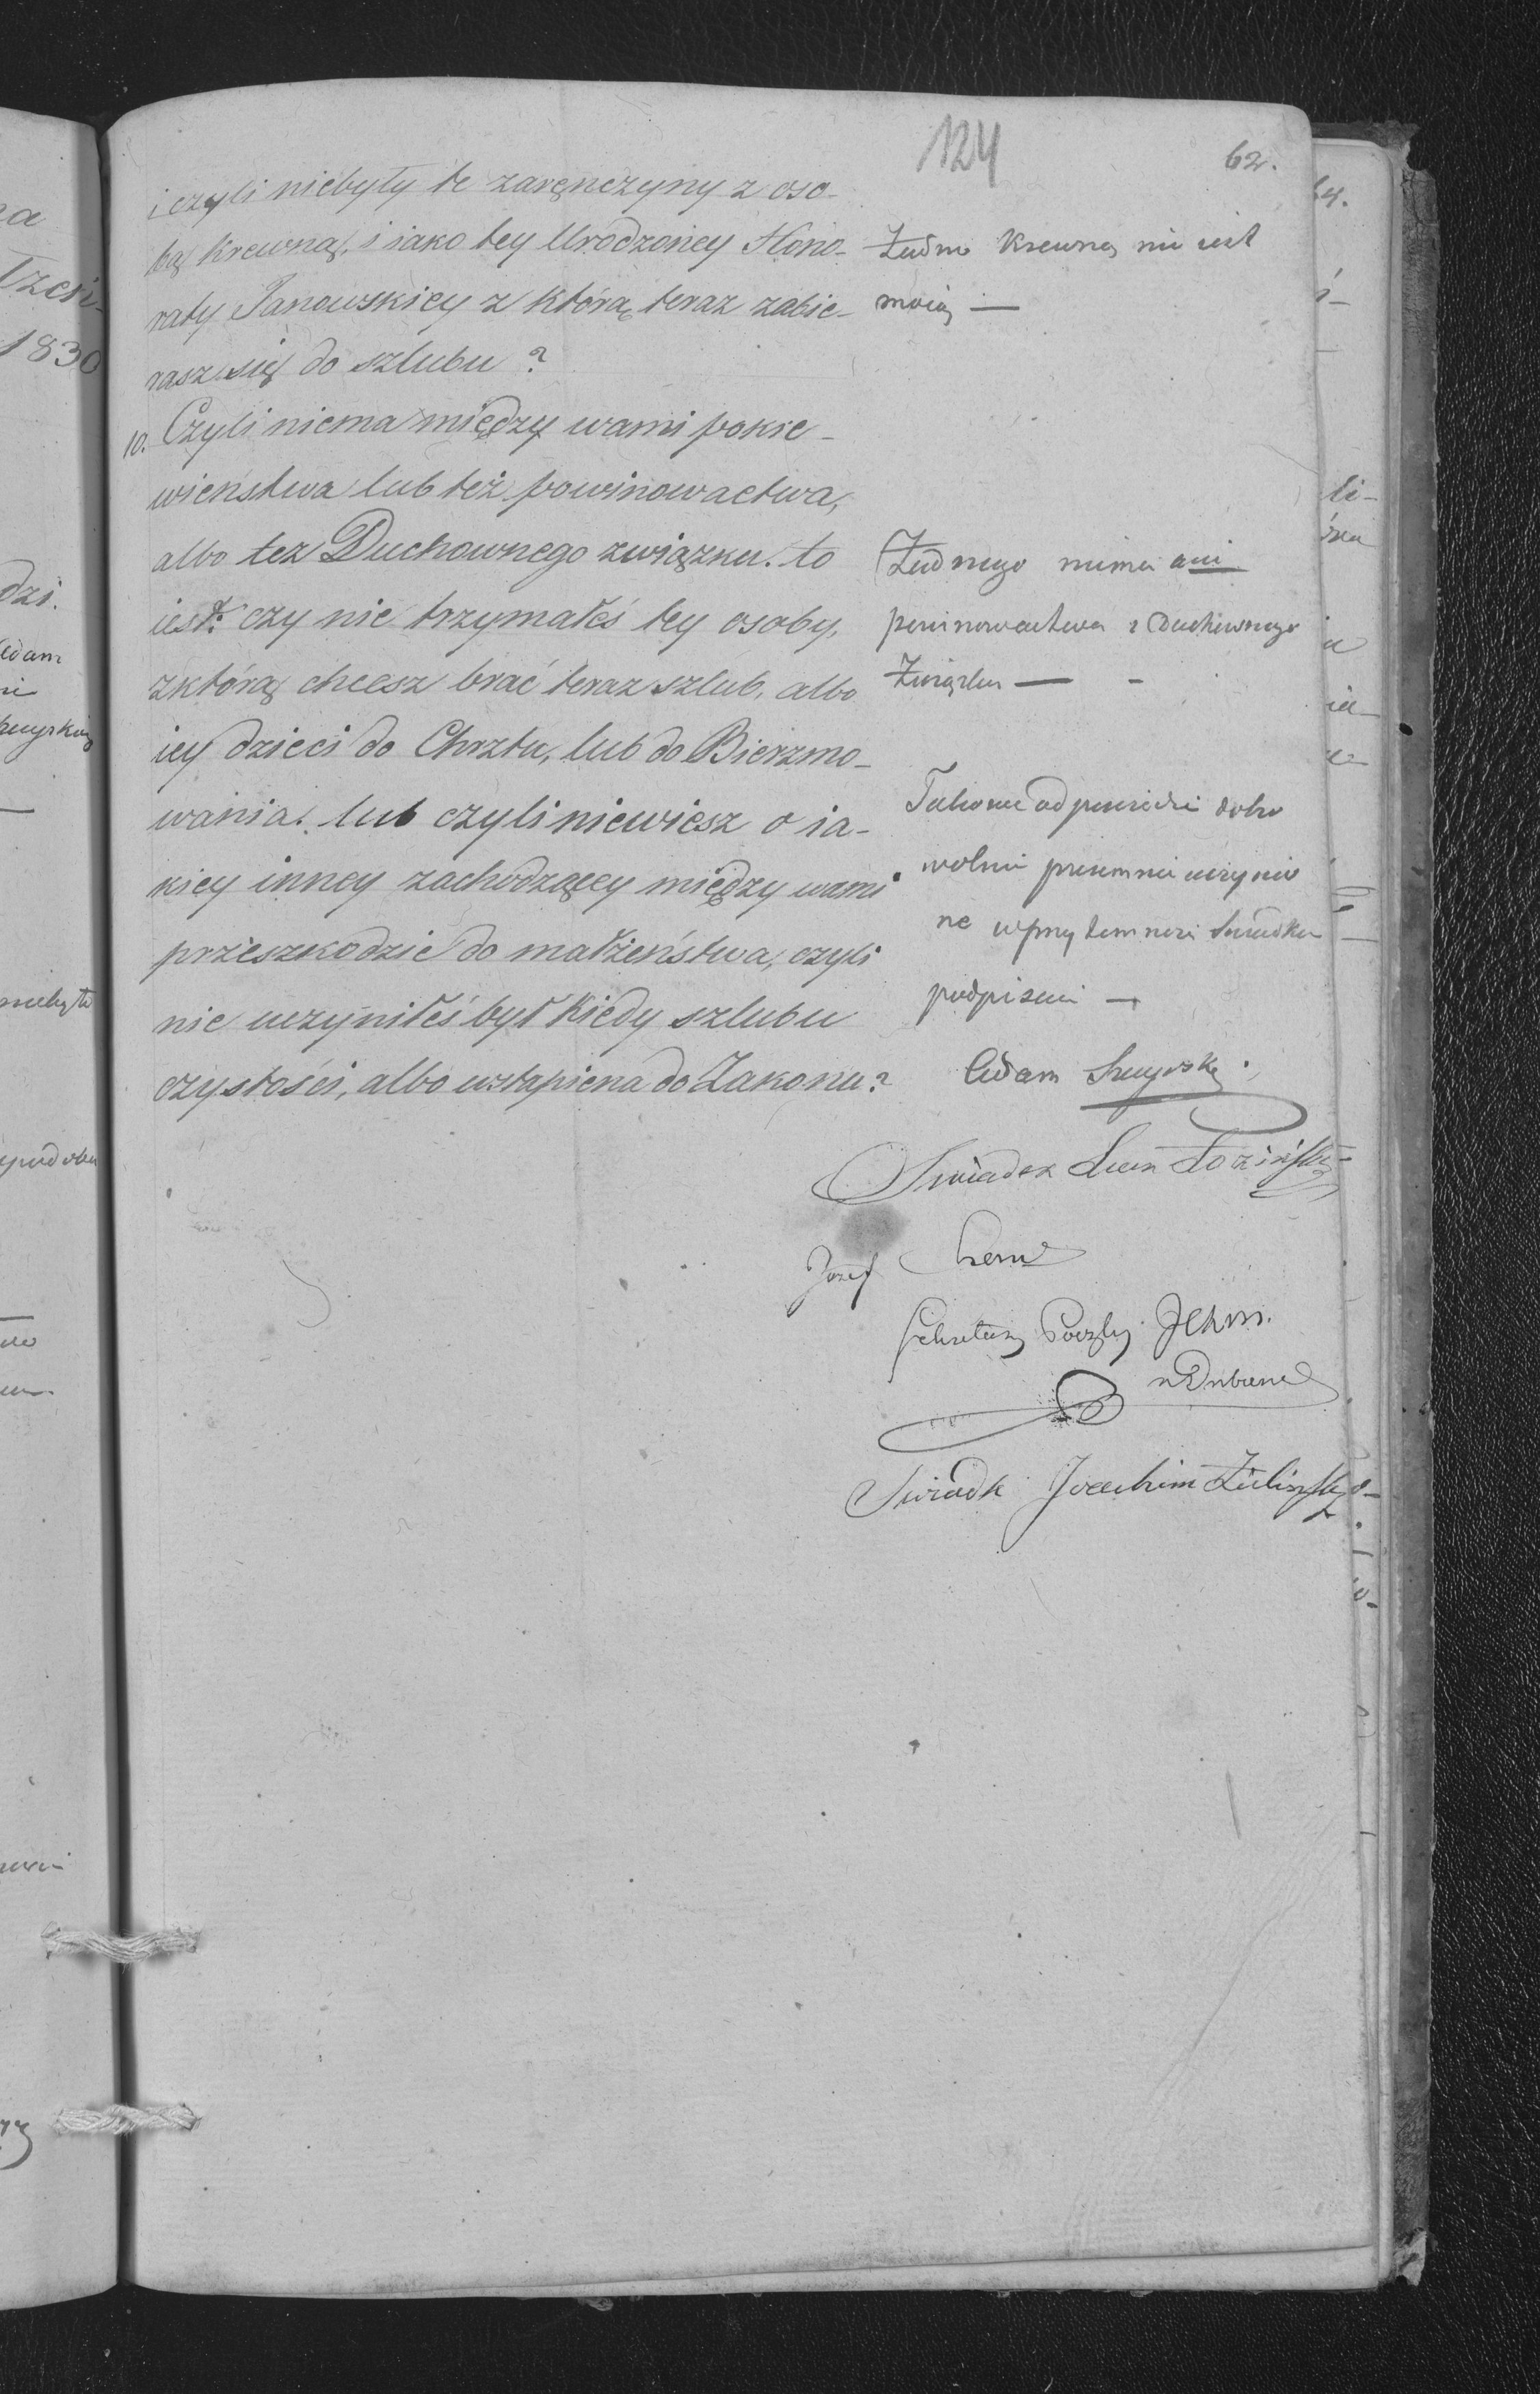 124
62.
i czyli niebyły te zaręnczyny z oso-
bą krewną, i iako tey Urodzoney Hono-
raty Janowskiey z którą teraz zabie-
rasz się do szlubu?
Żadną Krewną nie iest
moią —
10. Czyli niema między wami pokre-
wieństwa lub też powinowactwa,
albo tez Duchownego związku. to
iest: czy nie trzymałeś tey osoby,
zktórą chcesz brać teraz szlub, albo
iey dzieci do Chrztu, lub do Bierzmo-
wania. lub czyli niewiesz o ia-
kiey inney zachodzącey między wami
przeszkodzie do małżeństwa, czyli
nie uczyniłeś był kiedy szlubu
czystości, albo wstąpiena do Zakonu?
Żadnego niema ani
powinowactwa i Duchownego
Związku — -
Takowe odpowiedzi dobro
wolnie przezemnie uczynio
ne w przytomności Swiadków
podpisuie —
Adam
Swiadek Łoziński
Jozef
Sekretarz Poczty
w Dubnie
Swiadk Joachim Zieliński